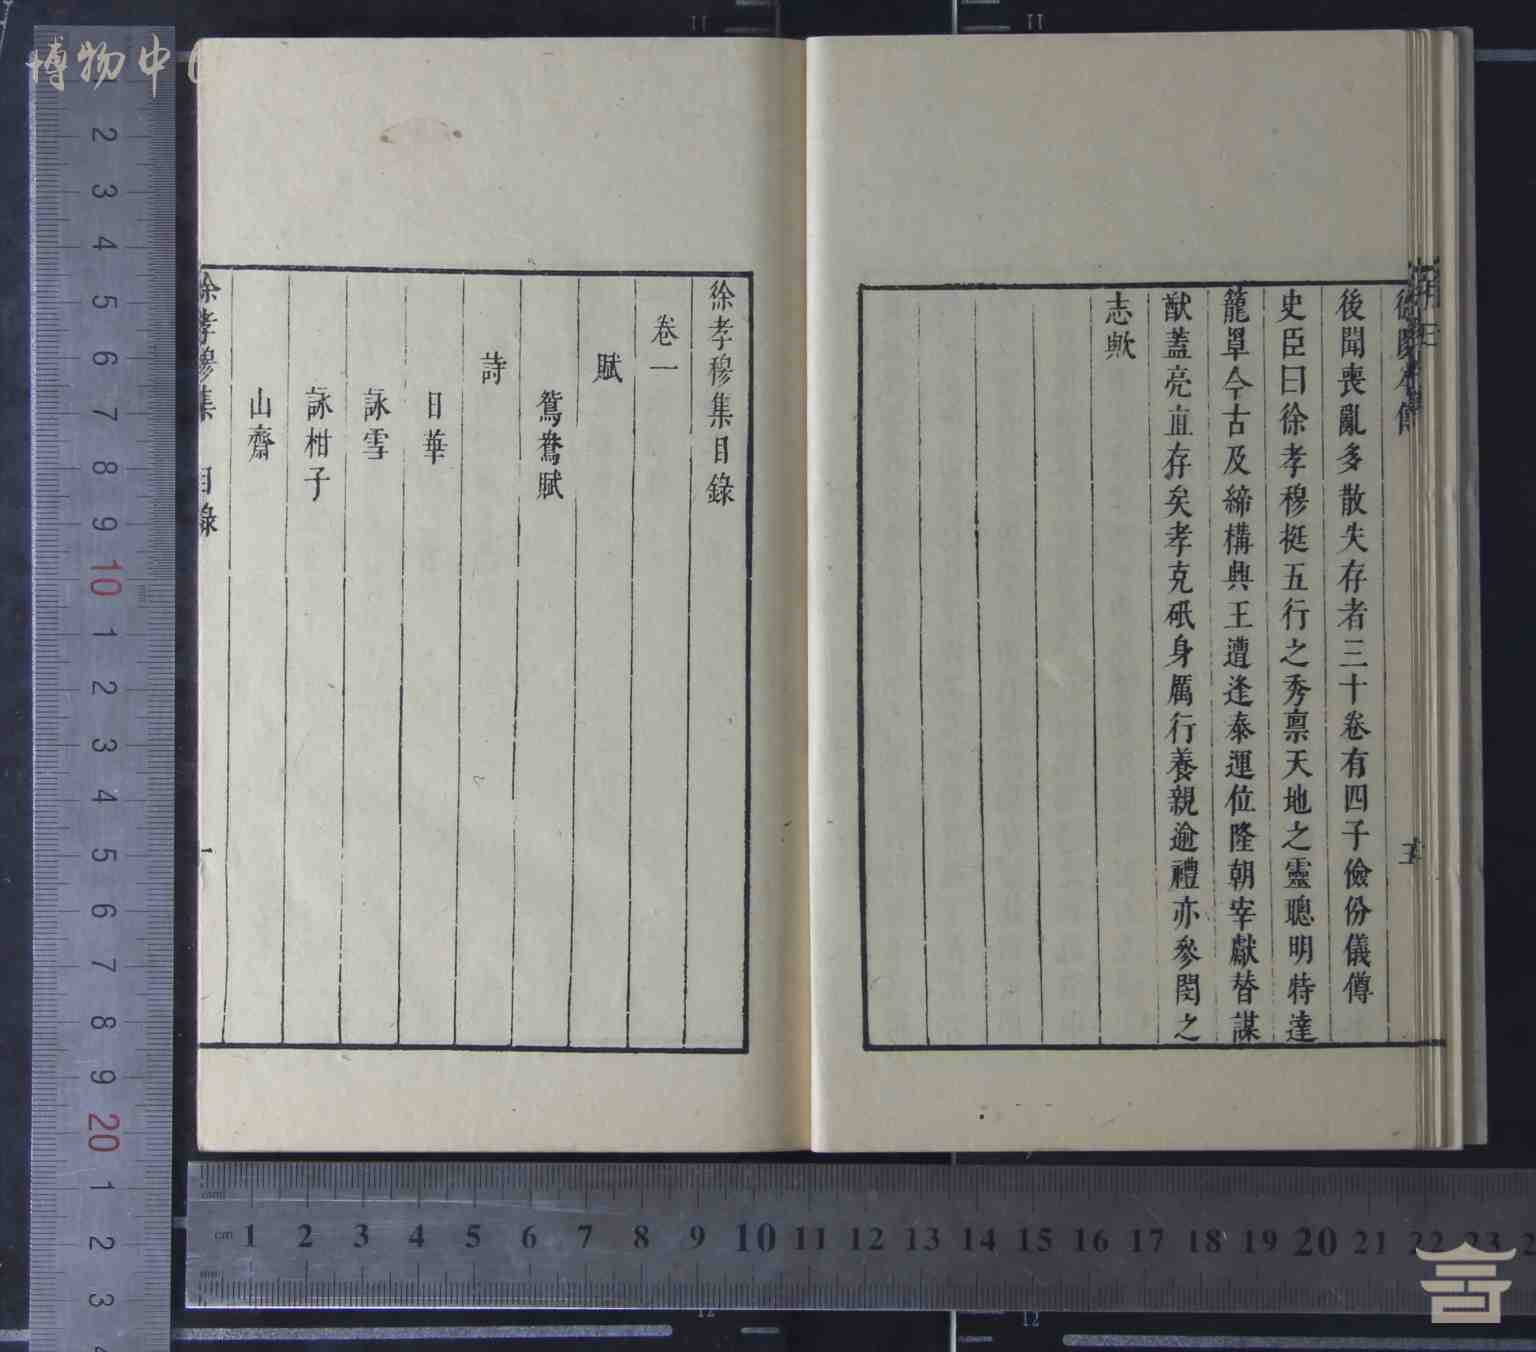 後聞喪亂多散失存者三十卷有四子儉份儀僔
史臣曰徐孝穆挺五行之秀禀天地之靈聰明特達
籠罩今古及締構興王遭逢泰運位隆朝宰獻替謀
猷蓋亮直存矣孝克砥身厲行養親逾禮亦參閔之
志歟
徐孝穆集目錄
卷一
賦
鴛鴦賦
詩
日華
詠雪
詠柑子
山齋
徐孝穆集 目錄 一
博物中
2 3 4 5 6 7 8 9 10 1 2 3 4 5 6 7 8 9 20 1 2 3
cm 1 2 3 4 5 6 7 8 9 10 11 12 13 14 15 16 17 18 19 20 21 22 23